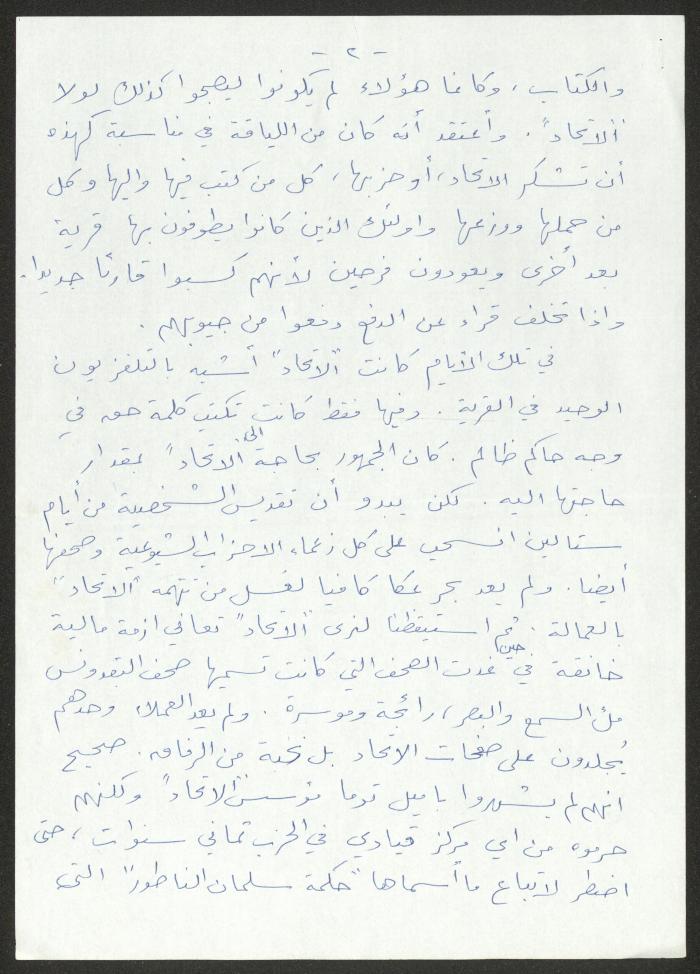 - ٢ -
والكتاب، وكانما هؤلاء لم يكونوا ليصبحوا كذلك لولا
"الاتحاد". وأعتقد أنه كان من اللياقة في مناسبة كهذه
أن تشكر الاتحاد، أو حزبها، كل من كتب فيها واليها وكل
من حملها ووزعها واولئك الذين كانوا يطوفون بها قرية
بعد أخرى ويعودون فرحين لأنهم كسبوا قارئا جديدا.
واذا تخلف قراء عن الدفع دفعوا من جيوبهم.
في تلك الأيام كانت "الاتحاد" أشبه بالتلفزيون
الوحيد في القرية. وفيها فقط كانت تكتب كلمة حق في
وجه حاكم ظالم. كان الجمهور بحاجة الى "الاتحاد" بمقدار
حاجتها اليه. لكن يبدو أن تقديس الشخصية من أيام
ستالين انسحب على كل زعماء الاحزاب الشيوعية وصحفها
أيضا. ولم يعد بحر عكا كافيا لغسل من تتهمه "الاتحاد"
بالعمالة. ثم استيقظنا لنرى "الاتحاد" تعاني ازمة مالية
خانقة في حين غدت الصحف التي كانت تسميها صحف البقدونس
ملء السمع والبصر، رائجة وموسرة. ولم يعد العملاء وحدهم
يُجلدون على صفحات الاتحاد بل نخبة من الرفاق. صحيح
انهم لم يشهروا باميل توما مؤسس "الاتحاد" ولكنهم
حرموه من اي مركز قيادي في الحزب ثماني سنوات، حتى
اضطر لاتباع ما أسماها "حكمة سلمان الناطور" التي